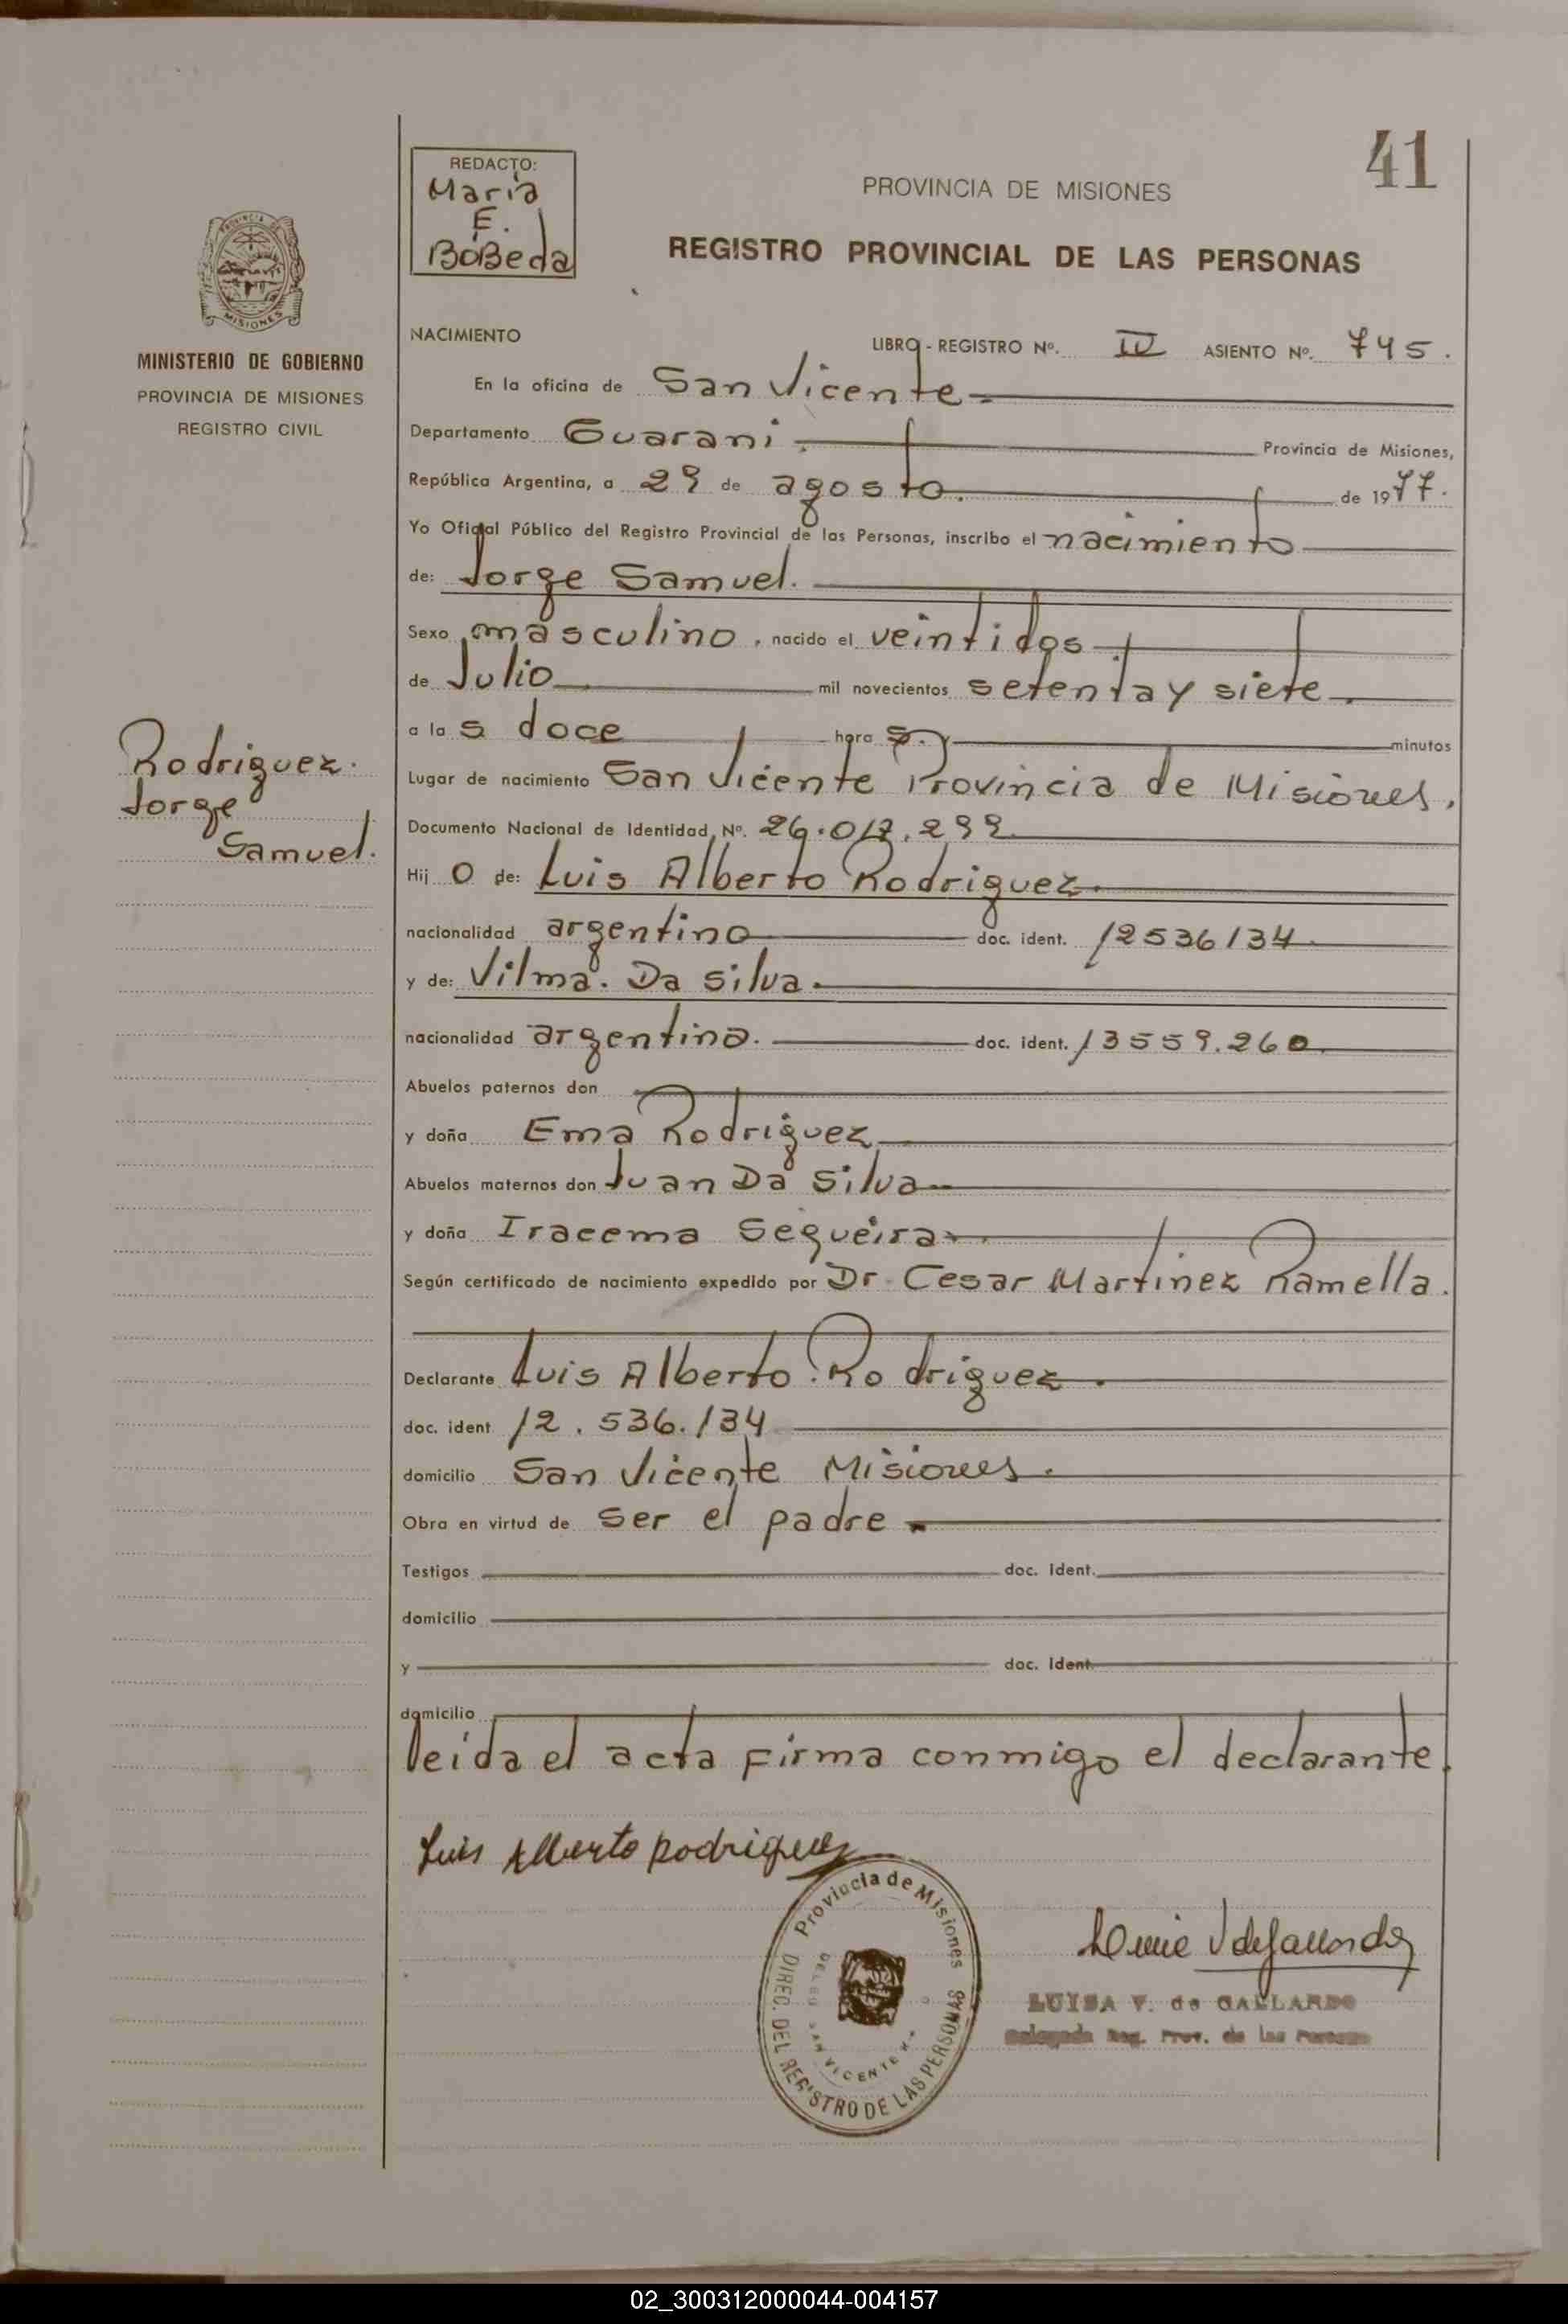 41
REDACTO:
Maria
E.
BoBeda
PROVINCIA DE MISIONES
REGISTRO PROVINCIAL DE LAS PERSONAS
MISIONES
MINISTERIO DE GOBIERNO
PROVINCIA DE MISIONES
REGISTRO CIVIL
NACIMIENTO LIBRO - REGISTRO Nº. IV ASIENTO Nº. 745.
En la oficina de San Vicente
Departamento Guarani. Provincia de Misiones,
República Argentina, a 29 de agosto. de 1977.
Yo Oficial Público del Registro Provincial de las Personas, inscribo el nacimiento
de: Jorge Samuel.
Sexo masculino, nacido el veintidos
de Julio mil novecientos setenta y siete.
a las doce horas. minutos
Lugar de nacimiento San Vicente Provincia de Misiones.
Rodriguez.
Jorge
Samuel.
Documento Nacional de Identidad Nº. 26.017.299
Hijo de: Luis Alberto Rodriguez.
nacionalidad argentino doc. ident. 12536134
y de: Vilma. Da Silva.
nacionalidad argentina. doc. ident. 13559.260
Abuelos paternos don
y doña Ema Rodriguez
Abuelos maternos don Juan Da Silva
y doña Iracema Sequeira
Según certificado de nacimiento expedido por Dr Cesar Martinez Ramella.
Declarante Luis Alberto Rodriguez.
doc. ident. 12.536.134
domicilio San Vicente Misiones.
Obra en virtud de ser el padre
Testigos doc. ident.
domicilio
y doc. ident.
domicilio
leida el acta firma conmigo el declarante.
Luis Alberto Rodriguez
Provincia de Misiones
DIREC. DEL REGISTRO DE LAS PERSONAS
SAN VICENTE
LUISA V. de GALLARDO
Delegada Reg. Prov. de las Personas
02_300312000044-004157